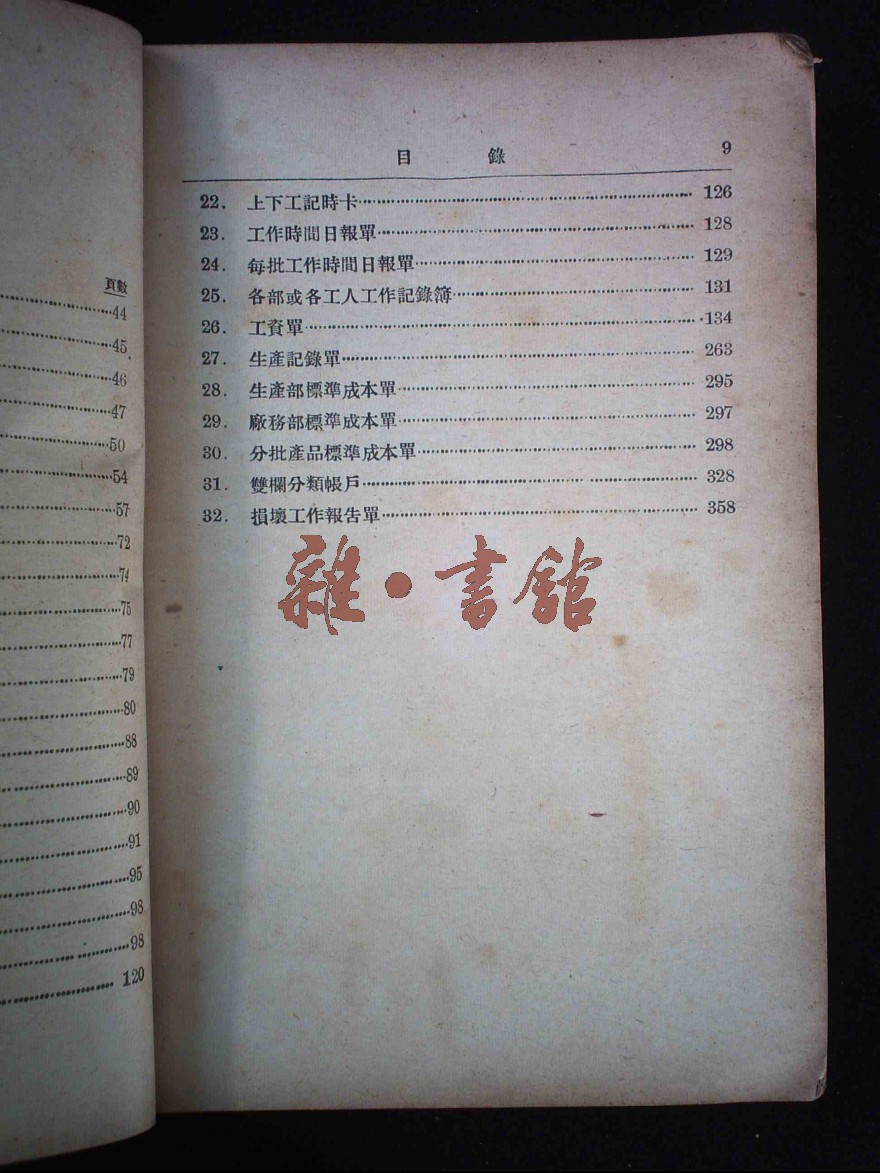 頁數
44
45
46
47
50
54
57
72
74
75
77
79
80
88
89
90
91
95
98
98
120
目 錄 9
22. 上下工記時卡 126
23. 工作時間日報單 128
24. 每批工作時間日報單 129
25. 各部或各工人工作記錄簿 131
26. 工資單 134
27. 生產記錄單 263
28. 生產部標準成本單 295
29. 廠務部標準成本單 297
30. 分批產品標準成本單 298
31. 雙欄分類帳戶 328
32. 損壞工作報告單 358
雜·書館